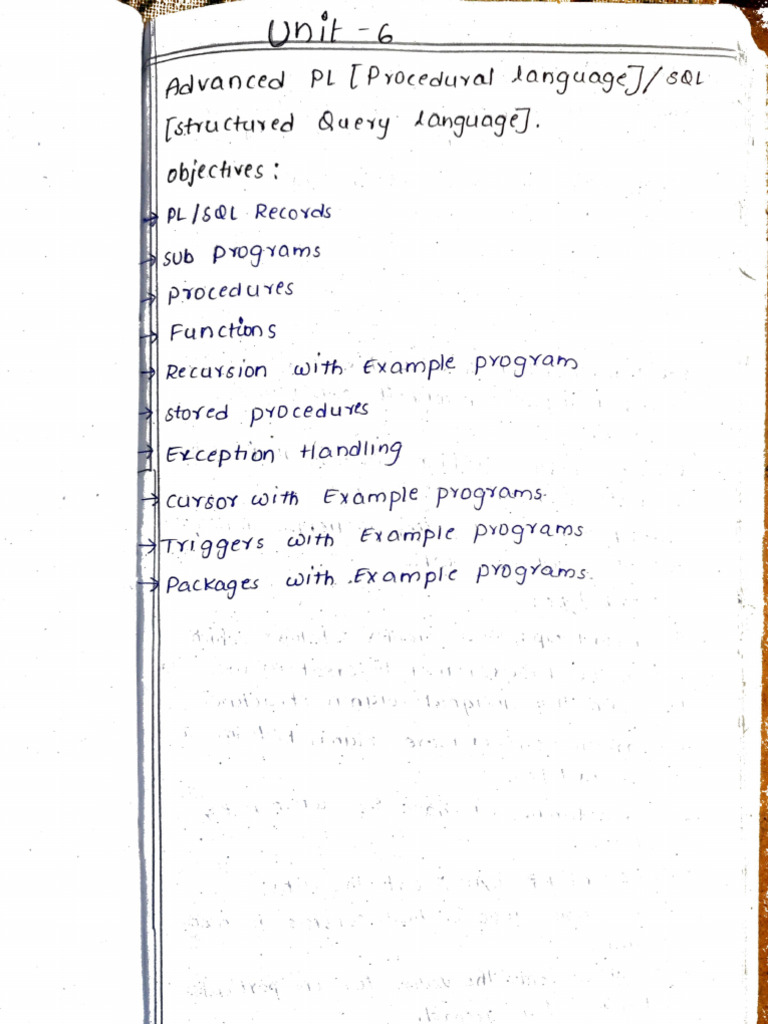 Unit - 6
Advanced PL [Procedural language]/SQL
[structured Query language].
objectives:
→ PL/SQL Records
→ sub programs
→ procedures
→ Functions
→ Recursion with Example program
→ stored procedures
→ Exception Handling
→ cursor with Example programs.
→ Triggers with Example programs
→ Packages with Example programs.